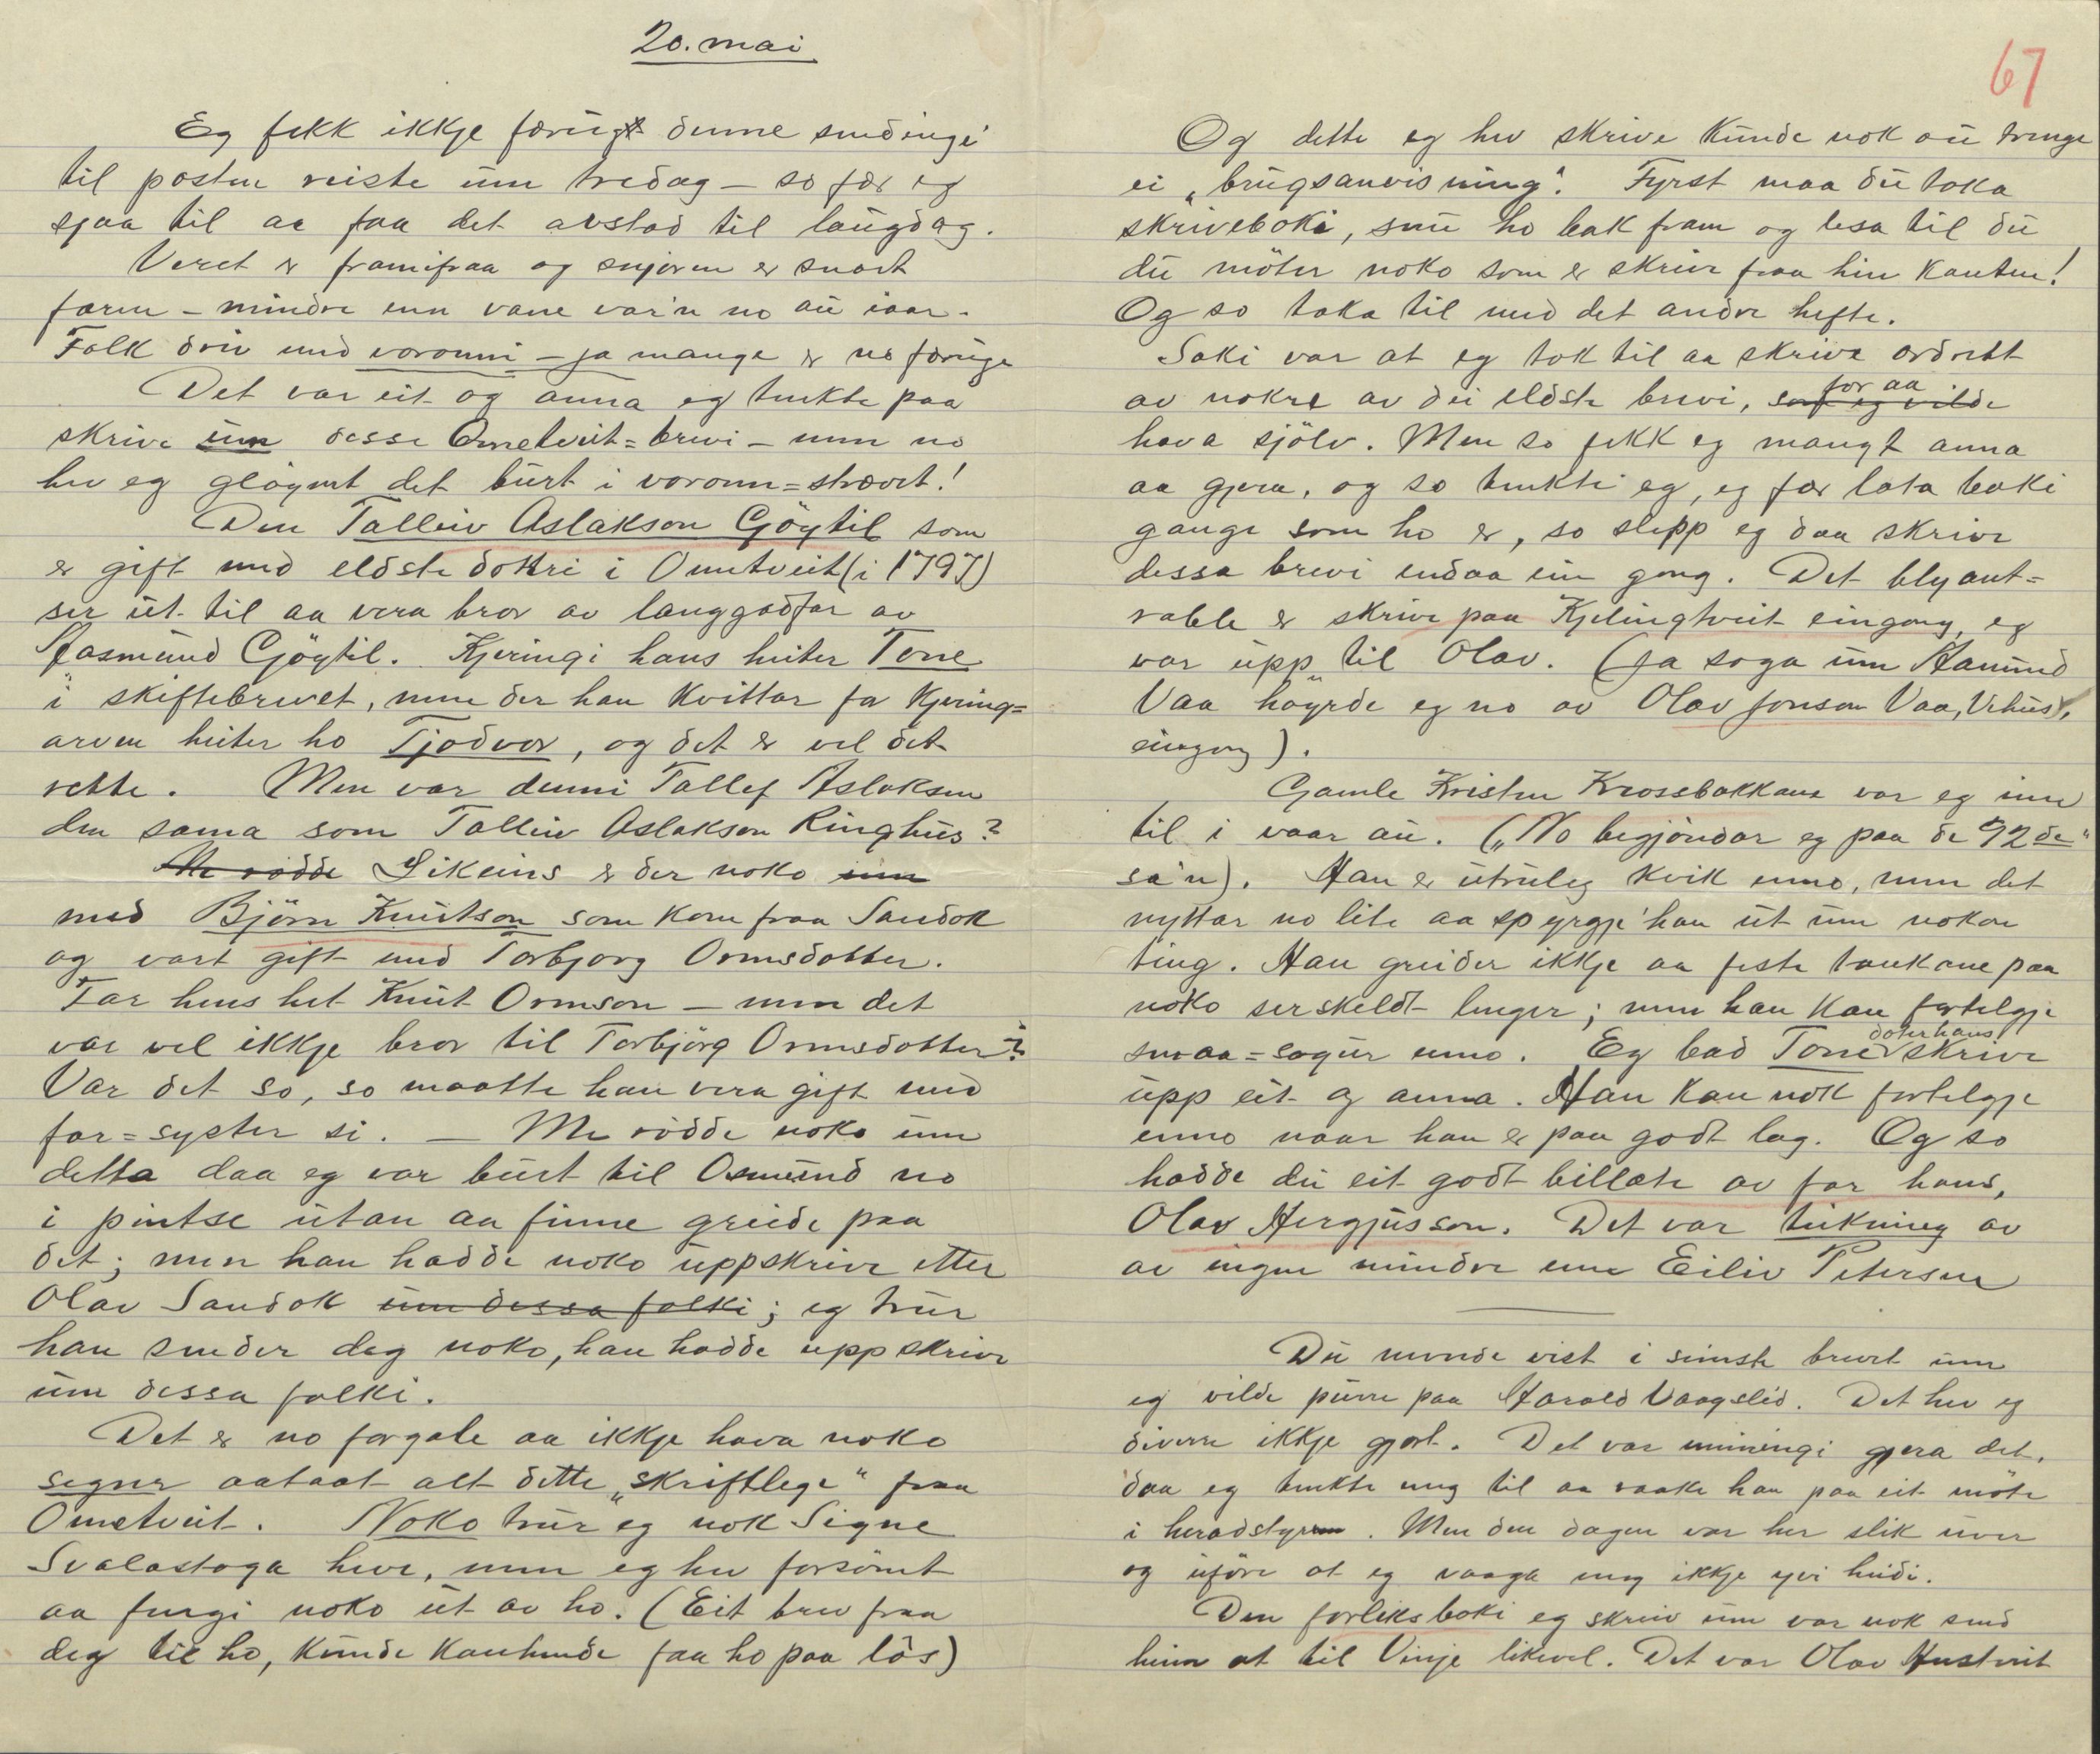 20. mai
Eg fekk ikkje færugt denne sendingi
til posten reiste um tredag - so fær eg
sjaa til aa faa det avstad til laugdag.
Veret er framifraa og snjoren er snart
faren - mindre enn vane var'n no au iaar.
Folk driv med voronni - ja mange er no færuge
Det var eit og anna eg tenkte paa
skrive um desse Ometveit=brevi - men no
hev eg gløymt det burt i voronn=strævet!
Den Talleiv Aslakson Gøytil som
er gift med eldste dotteri i Ometveit (i 1797)
ser ut til aa vera bror av langgodfar av
Jasmund Gøytil. Kjeringi hans heiter Tone
i skiftebrevet, men der han kvittar fø kjering=
arven heiter ho Tjodvor, og det er vel det
rette. Men var denni Tallef Aslaksen
den sama som Talleiv Aslakson Ringhus?
Me rødde Likeins er der noko um
med Bjørn Knutson som kom fraa Sandok
og vart gift med Torbjorg Ormsdotter.
Far hens het Knut Ormson - men det
var vel ikkje bror til Torbjørg Ormsdotter?
Var det so, so maatte han vera gift med
far=syster si. — Me rødde noko um
detta daa eg var burt til Osmund no
i pintse utan aa finne greide paa
det; men han hadde noko uppskrive etter
Olav Sandok um dessa folki; eg trur
han sender deg noko, han hadde uppskrive
um dessa folki.
Det er no forgale aa ikkje hava noko
segner aataat alt dette „skriftlege" fraa
Ometveit. Noko trur eg nok Signe
Svalastoga heve, men eg hev forsømt
aa fengi noko ut av ho. (Eit brev fraa
deg til ho, kunde kanhende faa ho paa løs)
67
Og dette eg hev skrive kunde nok au trenge
ei „brugsanvisning". Fyrst maa du taka
skriveboki, snu ho bak fram og lesa til du
du møter noko som er skrive fraa hin kanten!
Og so taka til med det andre hefte.
Saki var at eg tok til aa skrive ordrett
av nokre av dei eldste brevi, som eg vilde for aa
hava sjølv. Men so fekk eg mangt anna
aa gjera, og so tenkte eg, eg fær lata boki
gange som ho er, so slepp eg daa skrive
dessa brevi endaa ein gong. Det blyant=
rable er skrive paa Kjelingtveit eingong, eg
var upp til Olav. (Ja soga um Hamund
Vaa høyrde eg no av Olav Jonson Vaa, Vehus,
eingong).
Gamle Kristen Krossbakkane var eg inn
til i vaar au. („No begjøndar eg paa de 92de"
sa'n). Han er utruleg kvik enno, men det
nyttar no lite aa spyrgje 'han ut um nokon
ting. Han greider ikkje aa feste tankane paa
noko serskeldt lenger; men han kan fortelgje
smaa=sogur enno. Eg bad Tone doter hans skrive
upp eit og anna. Han kan nok fortelgje
enno naar han er paa godt lag. Og so
hadde du eit godt billæte av far hans,
Olav Hergjusson. Det var teikning av
av ingen mindre enn Eiliv Petersen
Du nemnde vist i seinste brevet um
eg vilde purre paa Harald Vaagslid. Det hev eg
diverre ikkje gjort. Det var meiningi gjera det,
daa eg tenkte meg til aa raake han paa eit møte
i heradstyre. Men den dagen var her slik uver
og uføre at eg vaaga meg ikkje yvi heidi.
Den forliksboki eg skreiv um var nok send
heim at til Vinje likevel. Det var Olav Hustveit